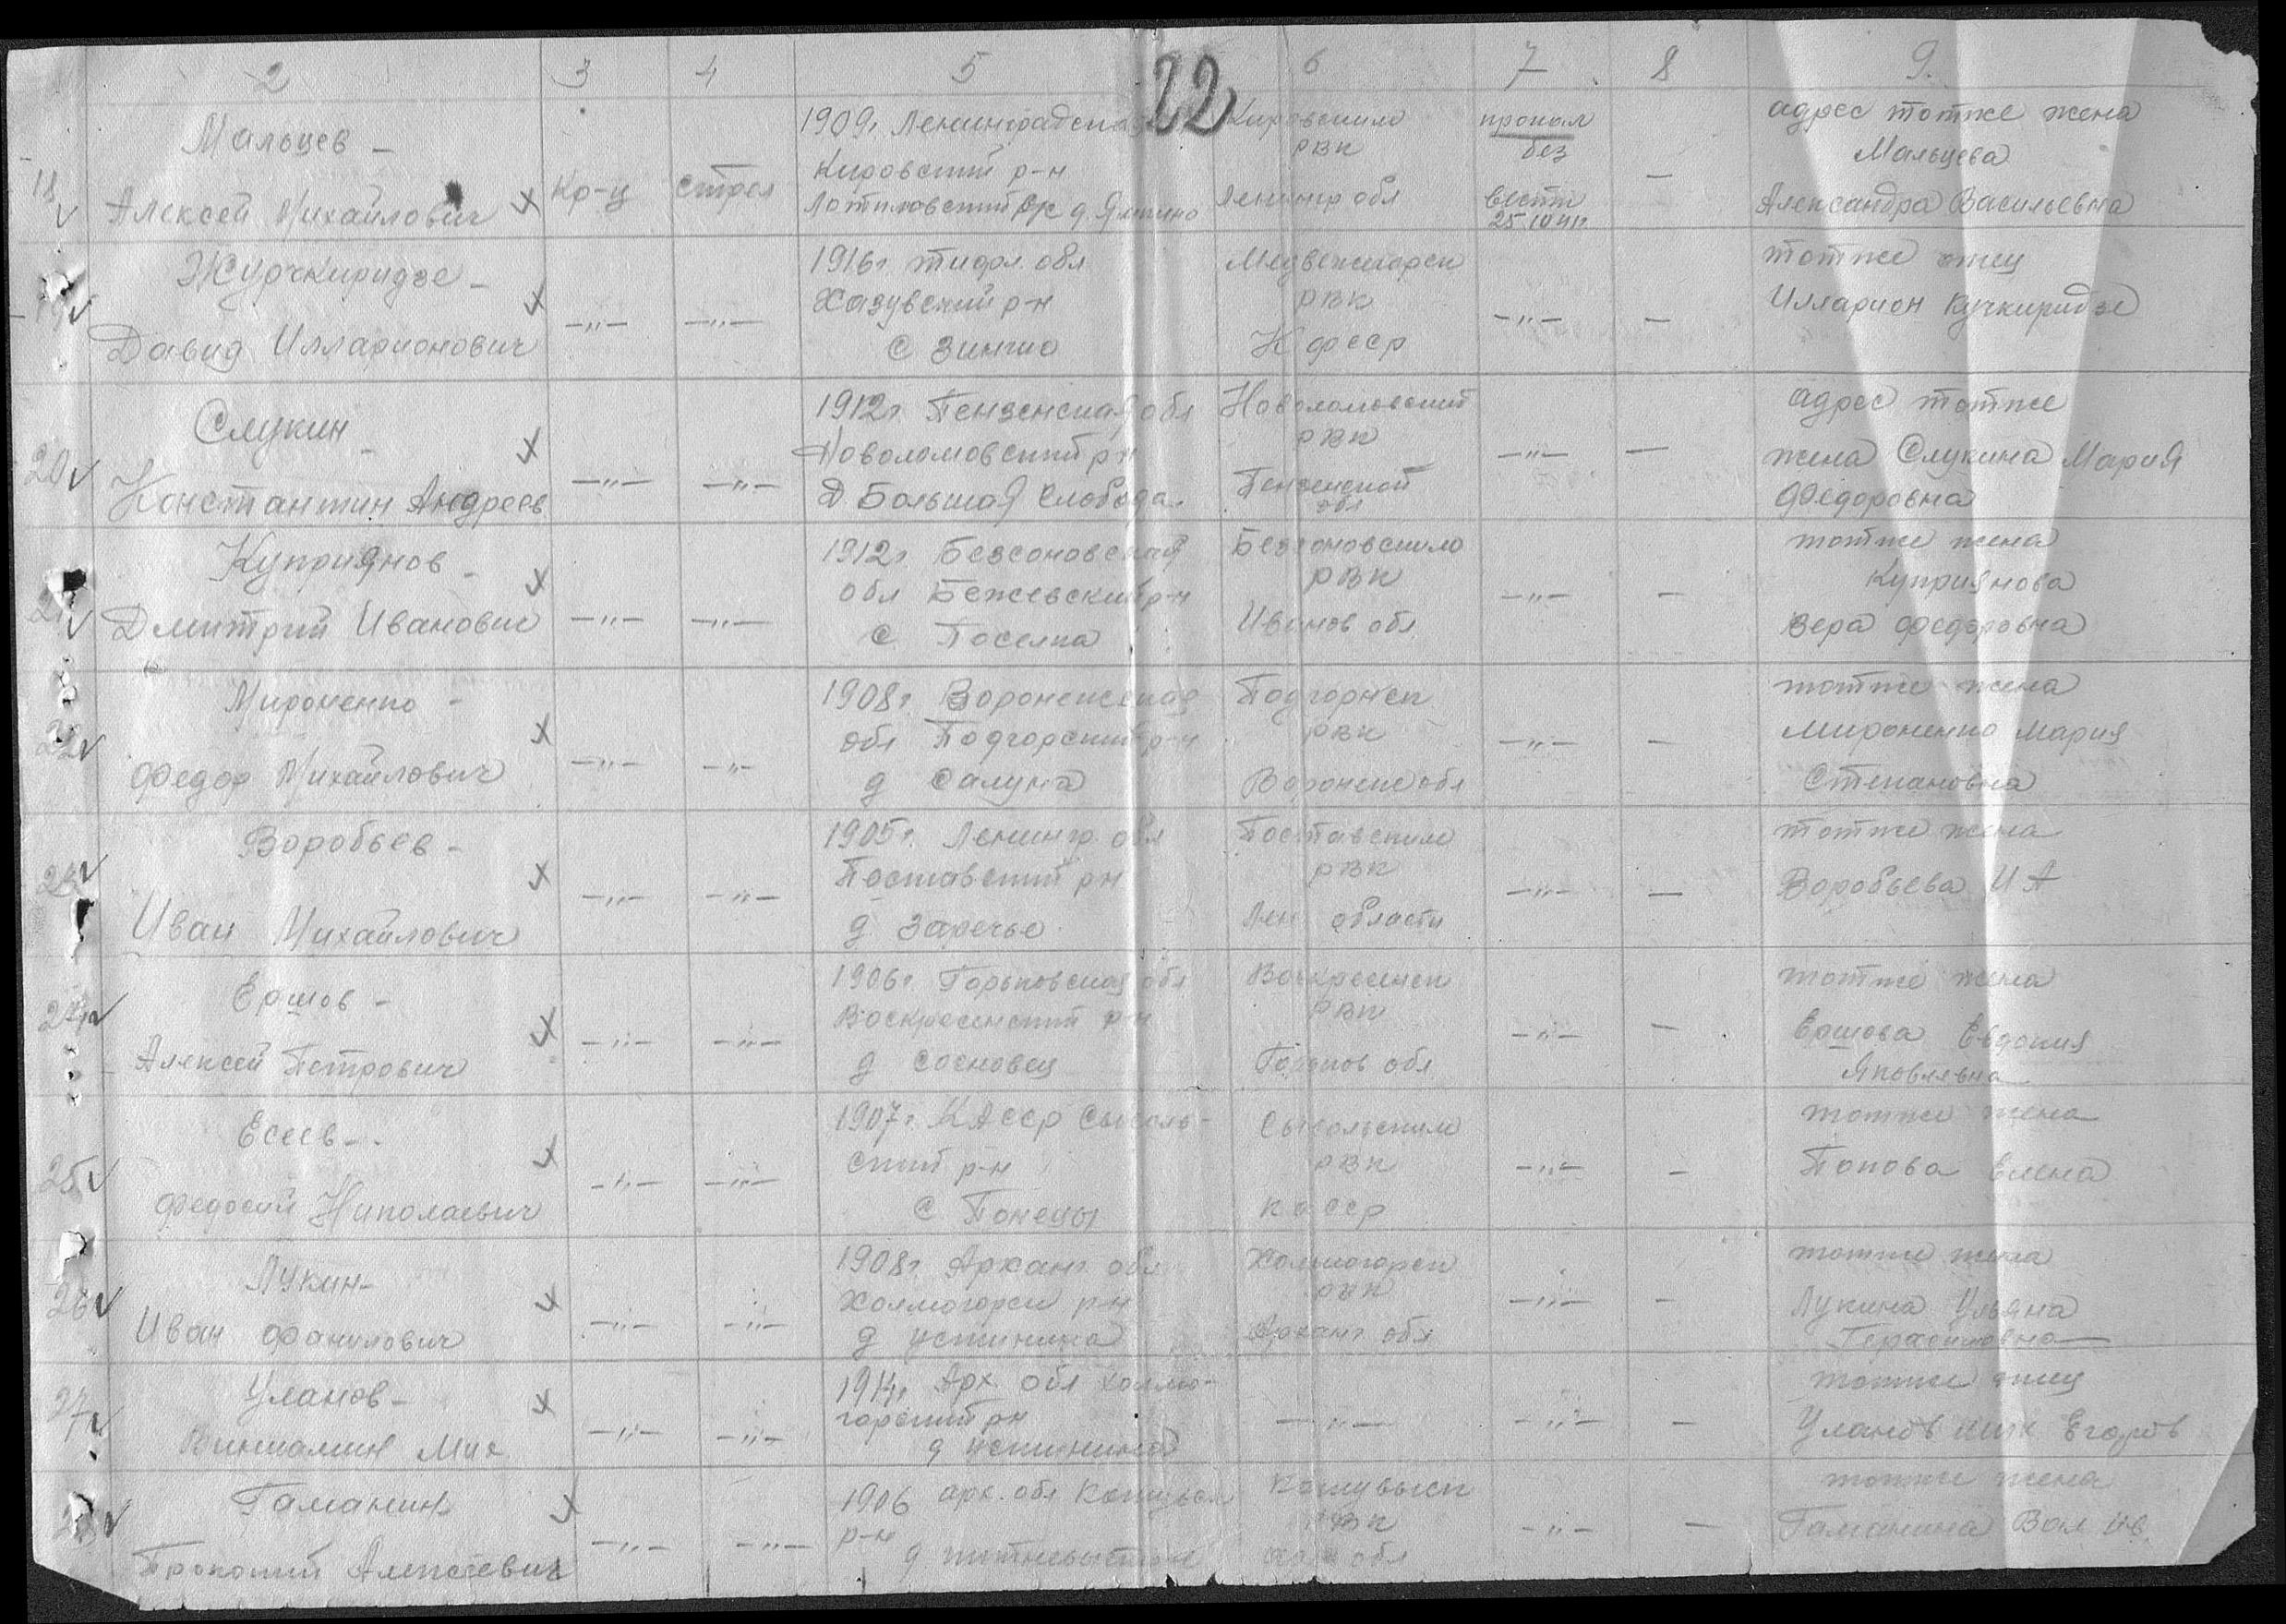 2 3 4 5 22 6 7 8 9.
18
Мальцев –
Алексей Михайлович
Кр-ц
стрел
1909г Ленинградская
Кировский р-н
Кировским
РВК
Ленингр обл
пропал
без
вести
25.10.41г
—
адрес тотже жена
Мальцева
Александра Васильевна
19
Журчкиридзе –
Давид Илларионович
—"—
—"—
1916г тифл. обл
р-н
с Зингио
Медвежьегорск
РВК
К фсср
—"—
—
тотже отец
Илларион Кучкиридзе
20
Слукин –
Константин Андреев
—"—
—"—
1912г Пензенская обл
Новоломовский р-н
Д Большая Слобода.
Новоломовский
РВК
Пензенской
обл
—"—
—
адрес тотже
жена Слукина Мария
Федоровна
21
Куприянов –
Дмитрий Иванович
—"—
—"—
1912г Безсоновская
обл Бежевский р-н
с Поселка
Безсоновским
РВК
Иванов обл
—"—
—
тотже жена
Куприянова
Вера Федоровна
22
Мироненко –
Федор Михайлович
—"—
—"—
1908г Воронежская
обл Подгорский р-н
д Салуна
Подгорнск
РВК
Воронеж обл
—"—
—
тотже жена
Мироненко Мария
Степановна
23
Воробьев –
Иван Михайлович
—"—
—"—
1905г. Ленингр. обл
Поставский рн
д Заречье
Поставским
РВК
Лен области
—"—
—
тотже жена
Воробьева И А
24
Ершов –
Алексей Петрович
—"—
—"—
1906г. Горьковская обл
Воскресенский р-н
д Сосновец
Воскресенск
РВК
Горьков обл
—"—
—
тотже жена
Ершова Евдокия
Яковлевна
25
Есеев –
Федосий Николаевич
—"—
—"—
1907г. КАССР Сысоль-
ский р-н
с Понецы
Сысольским
РВК
КАССР
—"—
—
тотже жена
Попова Елена
26
Лукин –
Иван Фанилович
—"—
—"—
1908г Арханг обл
Холмогорск р-н
д Устинина
Холмогорск
РВК
Арханг обл
—"—
—
тотже жена
Лукина Ульяна
Герасимовна
27
Уланов –
Виниамин Мих
—"—
—"—
1914г Арх. обл Холмо-
горский рн
д
—"—
—"—
—
тотже отец
Уланов мих Егоров
28
Гаманин
Прокопий Алексеевич
—"—
—"—
1906 арх. обл
р-н
д
РВК
обл
—"—
—
тотже жена
Гаманина Вал Ив.